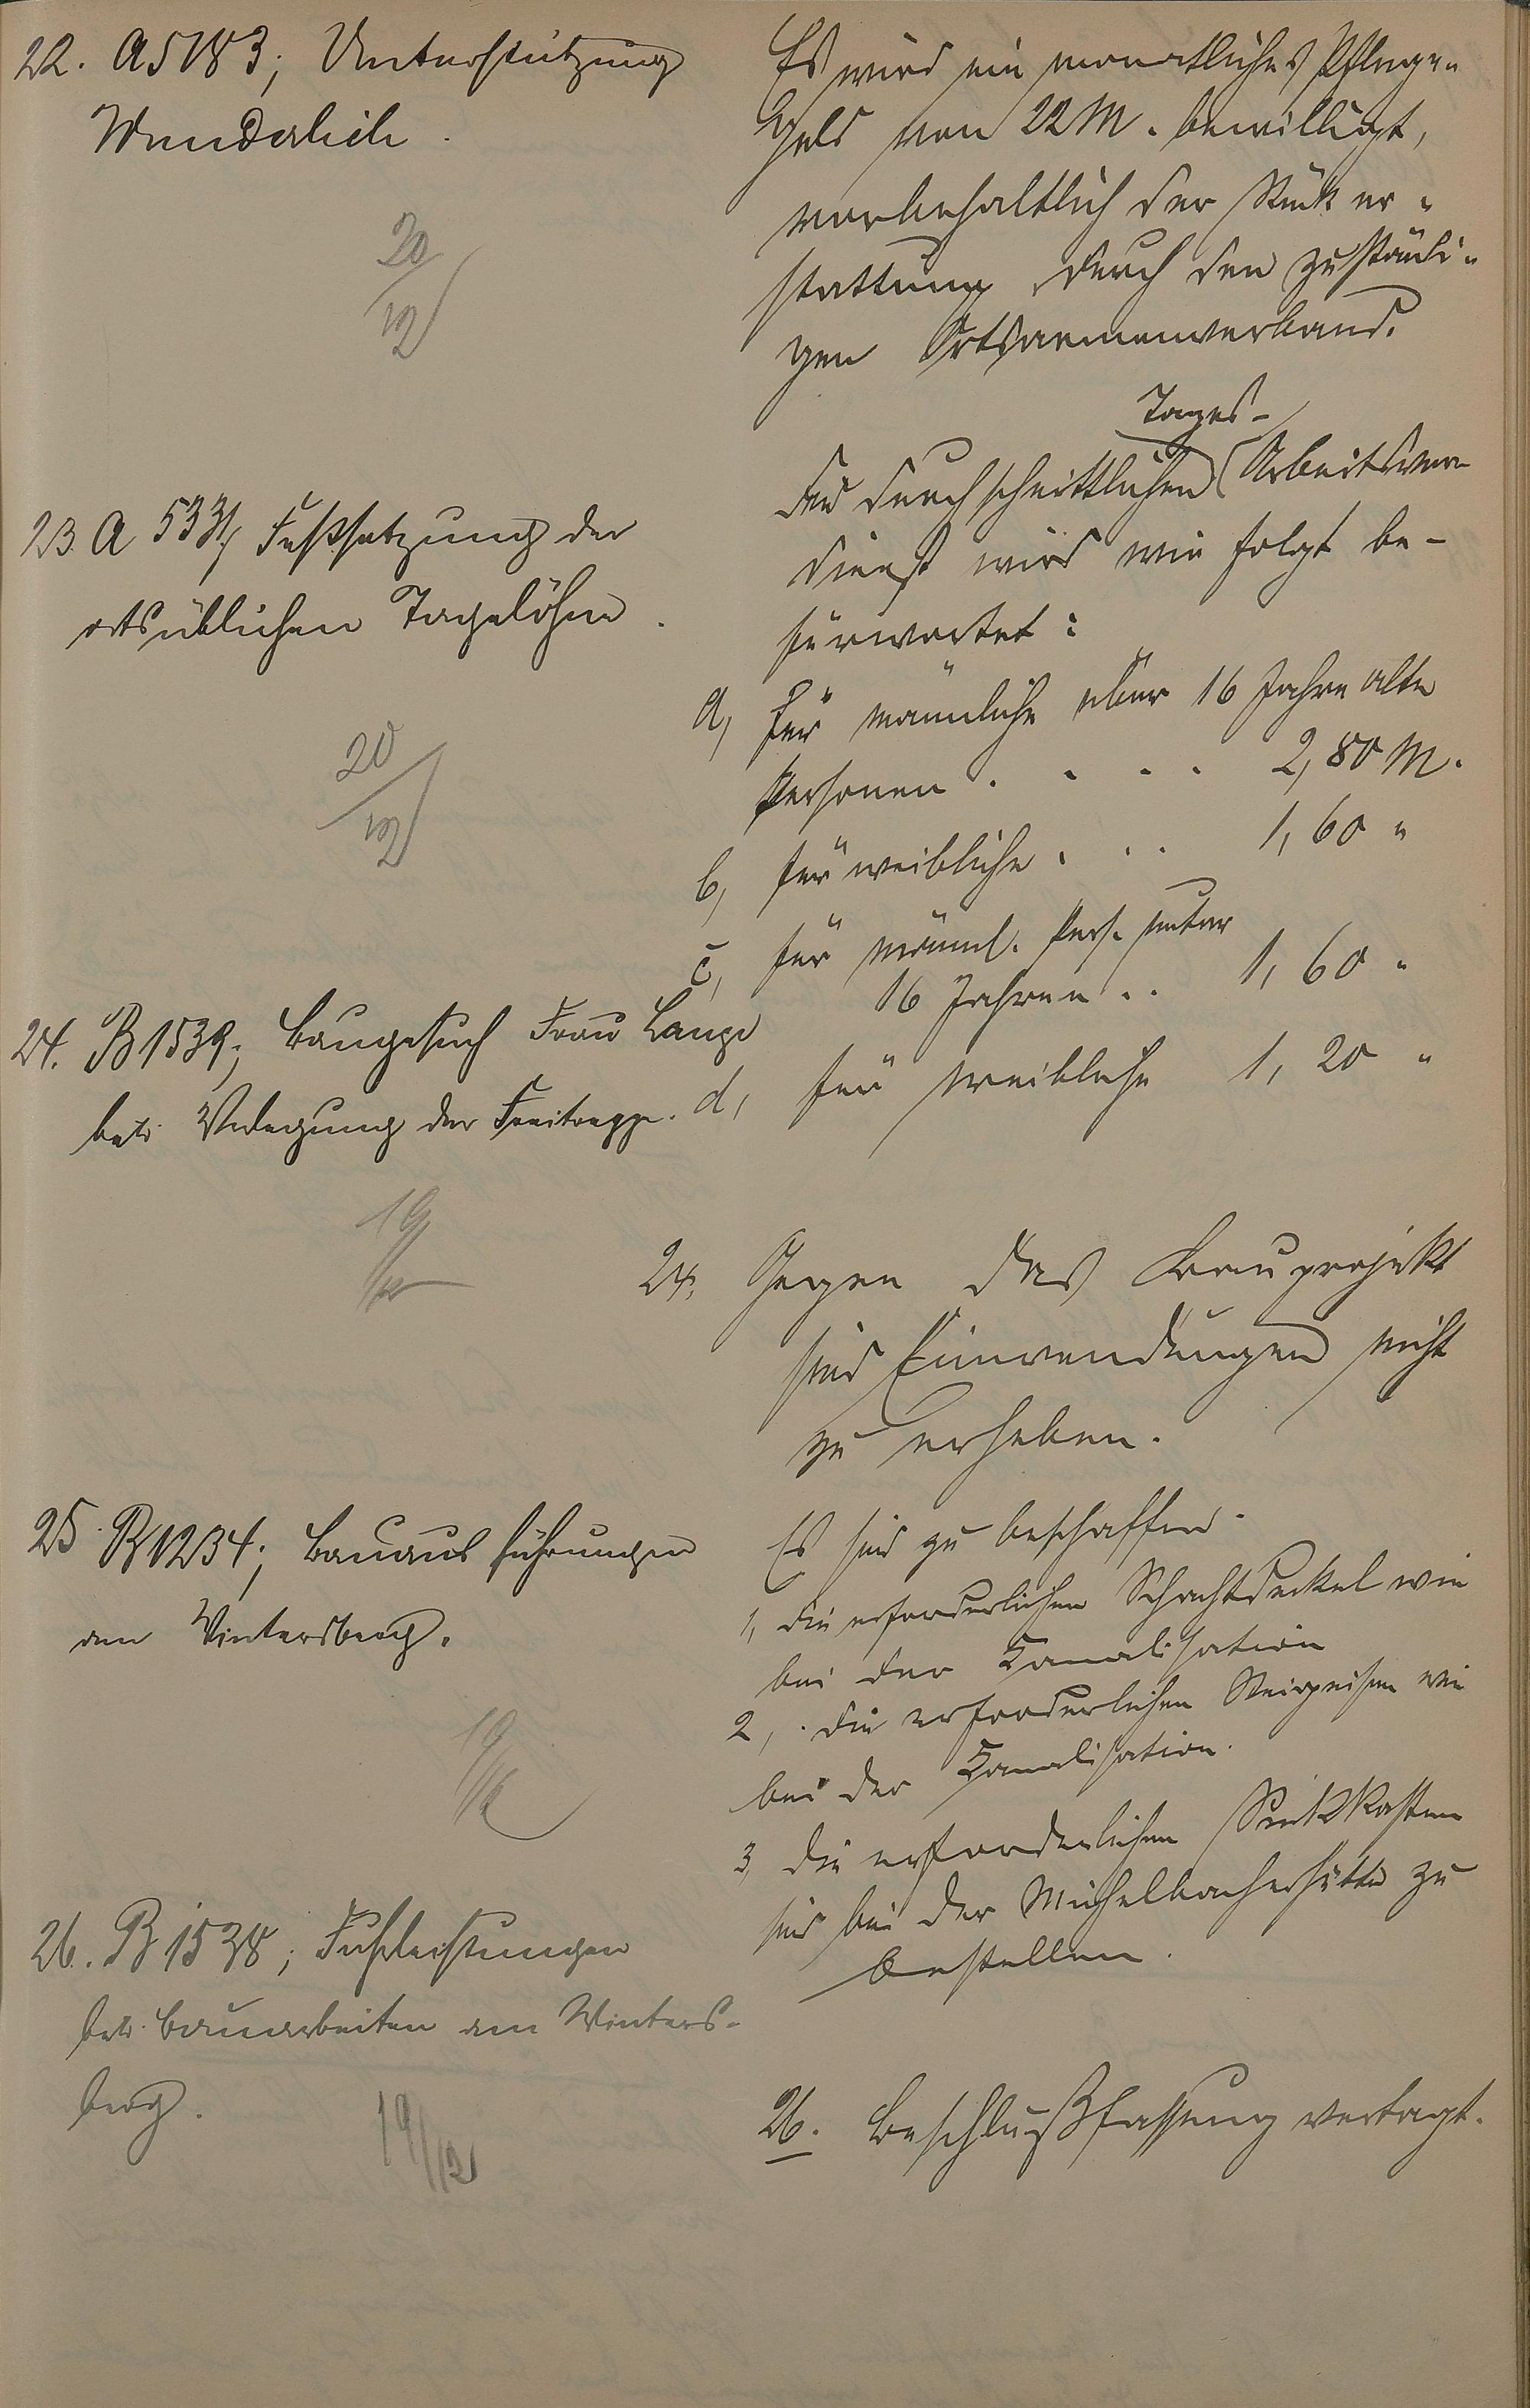 22. A 5183; Unterstützung
Wunderlich.
20/12
Es wird ein monatliches Pflege-
geld von 22 M. bewilligt,
vorbehaltlich der Rücker-
stattung durch den zuständi-
gen Ortsarmenverband.
23. A 5331; Festsetzung der
ortsüblichen Tagelöhne.
20/12
Tages-
Der durchschnittlichen Arbeitsver-
dienst wird wie folgt be-
fürwortet:
a, Für männliche über 16 Jahre alte
Personen . . . . 2,80 M.
b, für weibliche . . . 1,60 "
c, für männl. Pers. unter
16 Jahren . . 1,60 "
d, für weibliche 1,20 "
24. B 1539; Baugesuch Frau Lange
betr. Verlegung der Freitreppe.
19/12
24. Gegen das Bauprojekt
sind Einwendungen nicht
zu erheben.
25. B 1234; Bauausführungen
am Wintersberg.
19/12
Es sind zu beschaffen.
1, die erforderlichen Schachtdeckel wie
bei der Kanalisation
2, die erforderlichen Steigeisen wie
bei der Kanalisation.
3, die erforderlichen Sinkkasten
sind bei der Michelbacherhütte zu
bestellen.
26. B 1538; Fuhrleistungen
betr. Bauarbeiten am Winters-
berg.
19/12
26. Beschlußfassung vertagt.